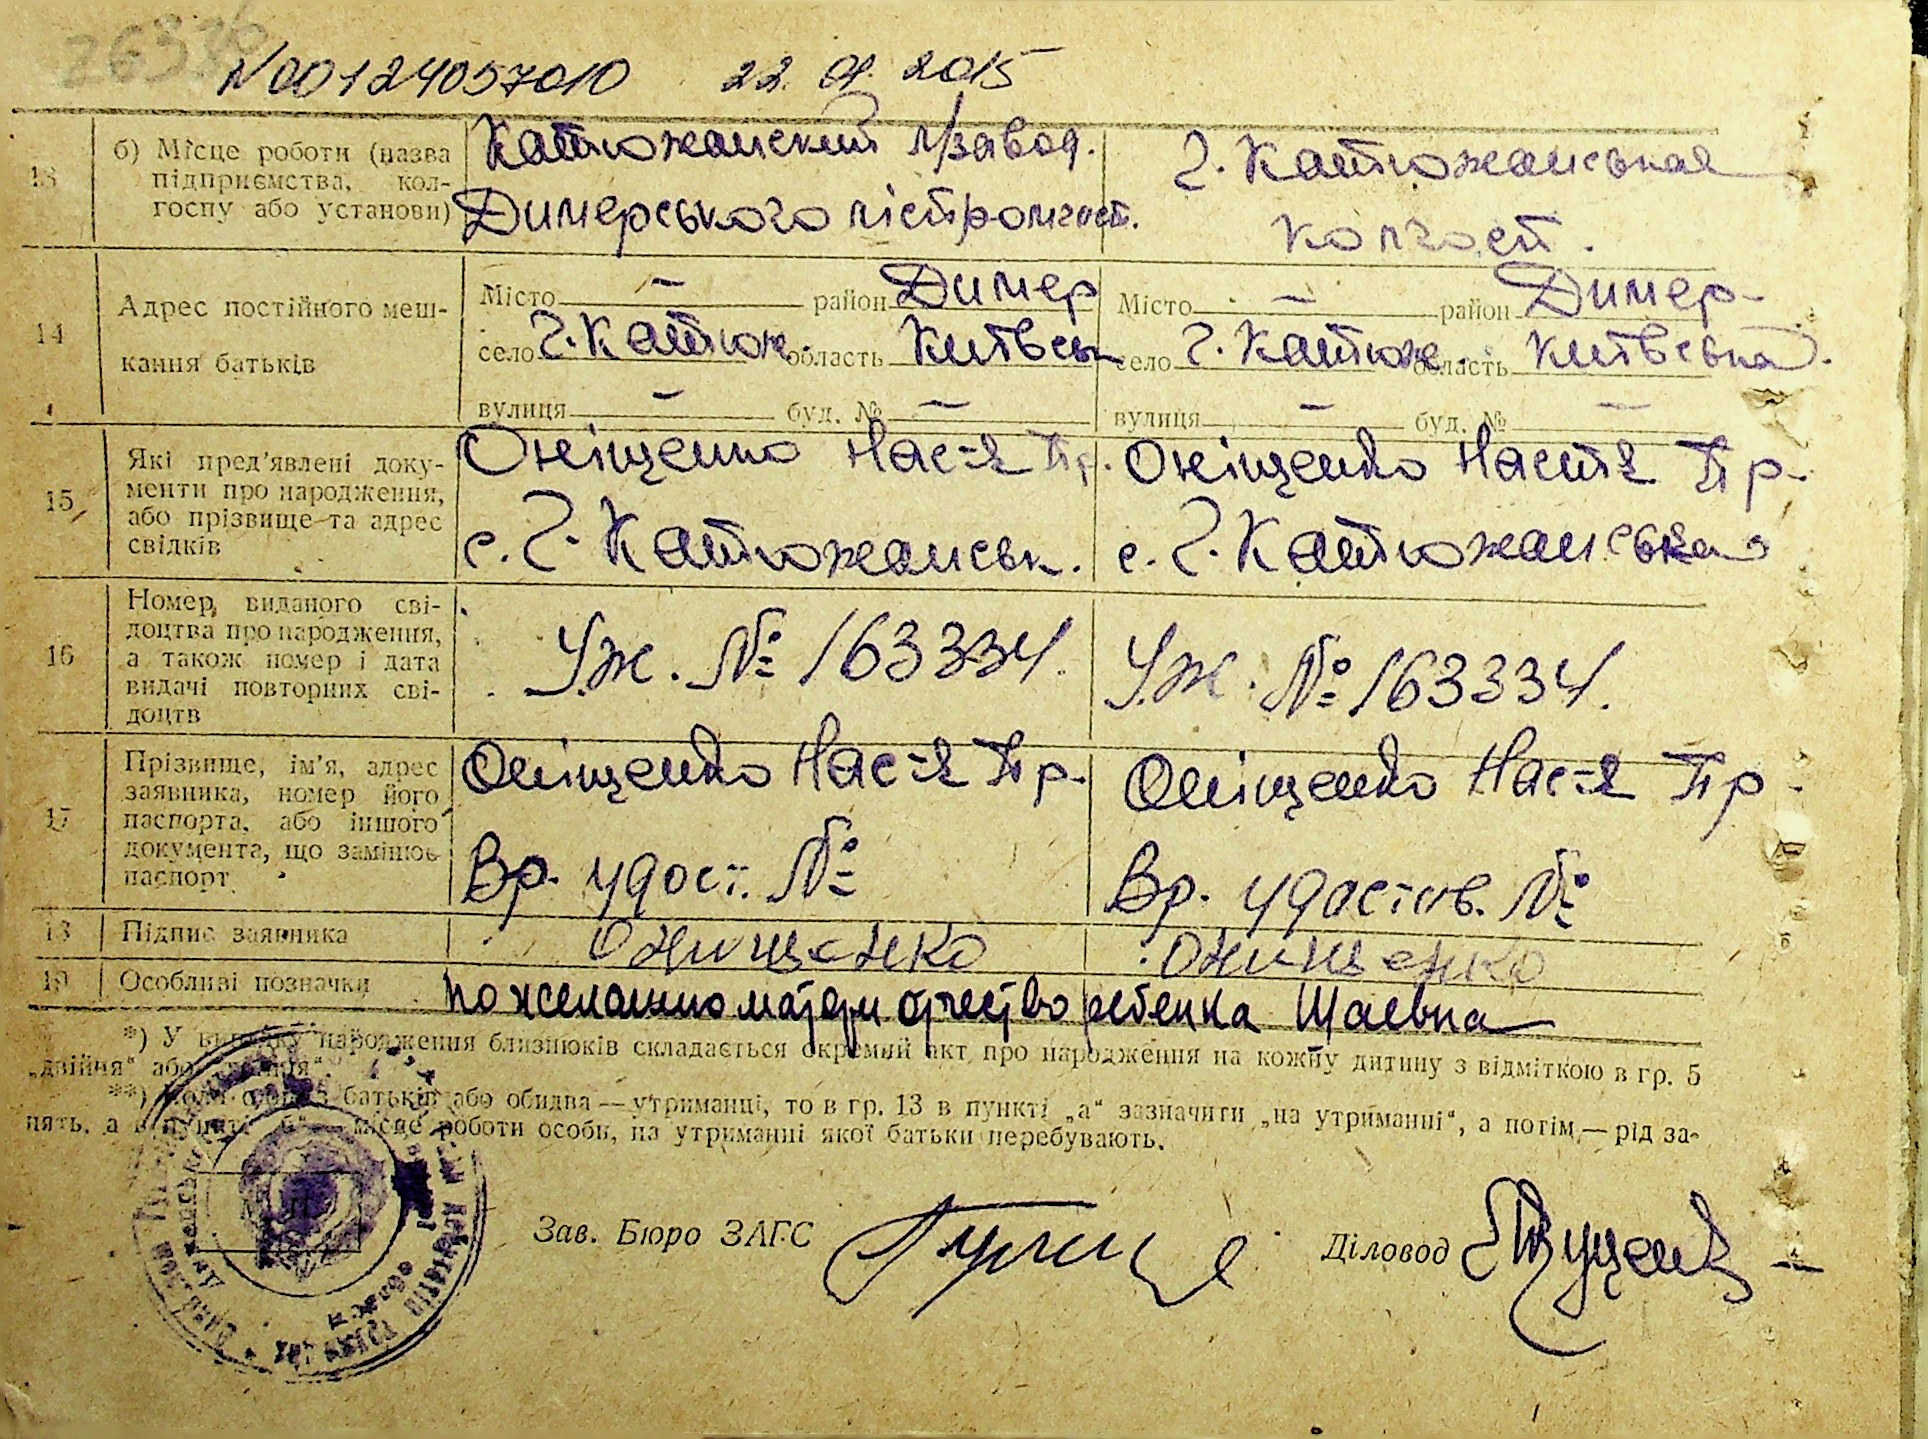 26376
N00124057010 22.01.2015
13 б) Місце роботи (назва підприємства, колгоспу або установи)
Катюжанский л/завод.
Димерського лістромгосп.
Г. Катюжанськая
колгосп.
14 Адрес постійного мешкання батьків
Місто — район Димер
село Г. Катюж. область Київськ
вулиця — буд. № —
Місто — район Димер-
село Г. Катюж. область Київська.
вулиця — буд. № —
15 Які пред'явлені документи про народження, або прізвище та адрес свідків
Оніщенко Нас-я Пр.
с. Г. Катюжанськ.
Оніщенко Настя Пр-
с. Г. Катюжанська
16 Номер, виданого свідоцтва про народження, а також номер і дата видачі повторних свідоцтв
УЖ. № 163334.
УЖ. № 163334.
17 Прізвище, ім'я, адрес заявника, номер його паспорта, або іншого документа, що замінює паспорт
Оніщенко Нас-я Пр.
Вр. удост. №
Оніщенко Нас-я Пр-
Вр. удостов. №
18 Підпис заявника
Онищенко
Онищенко
19 Особливі позначки
по желанию матери отчество ребенка
*) У випадку народження близнюків складається окремий акт про народження на кожну дитину з відміткою в гр. 5
„двійня“ або
**) Коли один з батьків або обидва — утриманці, то в гр. 13 в пункті „а“ зазначити „на утриманні“, а потім — рід за-
нять, а в пункті „б“ — місце роботи особи, на утриманні якої батьки перебувають.
Зав. Бюро ЗАГС
Діловод